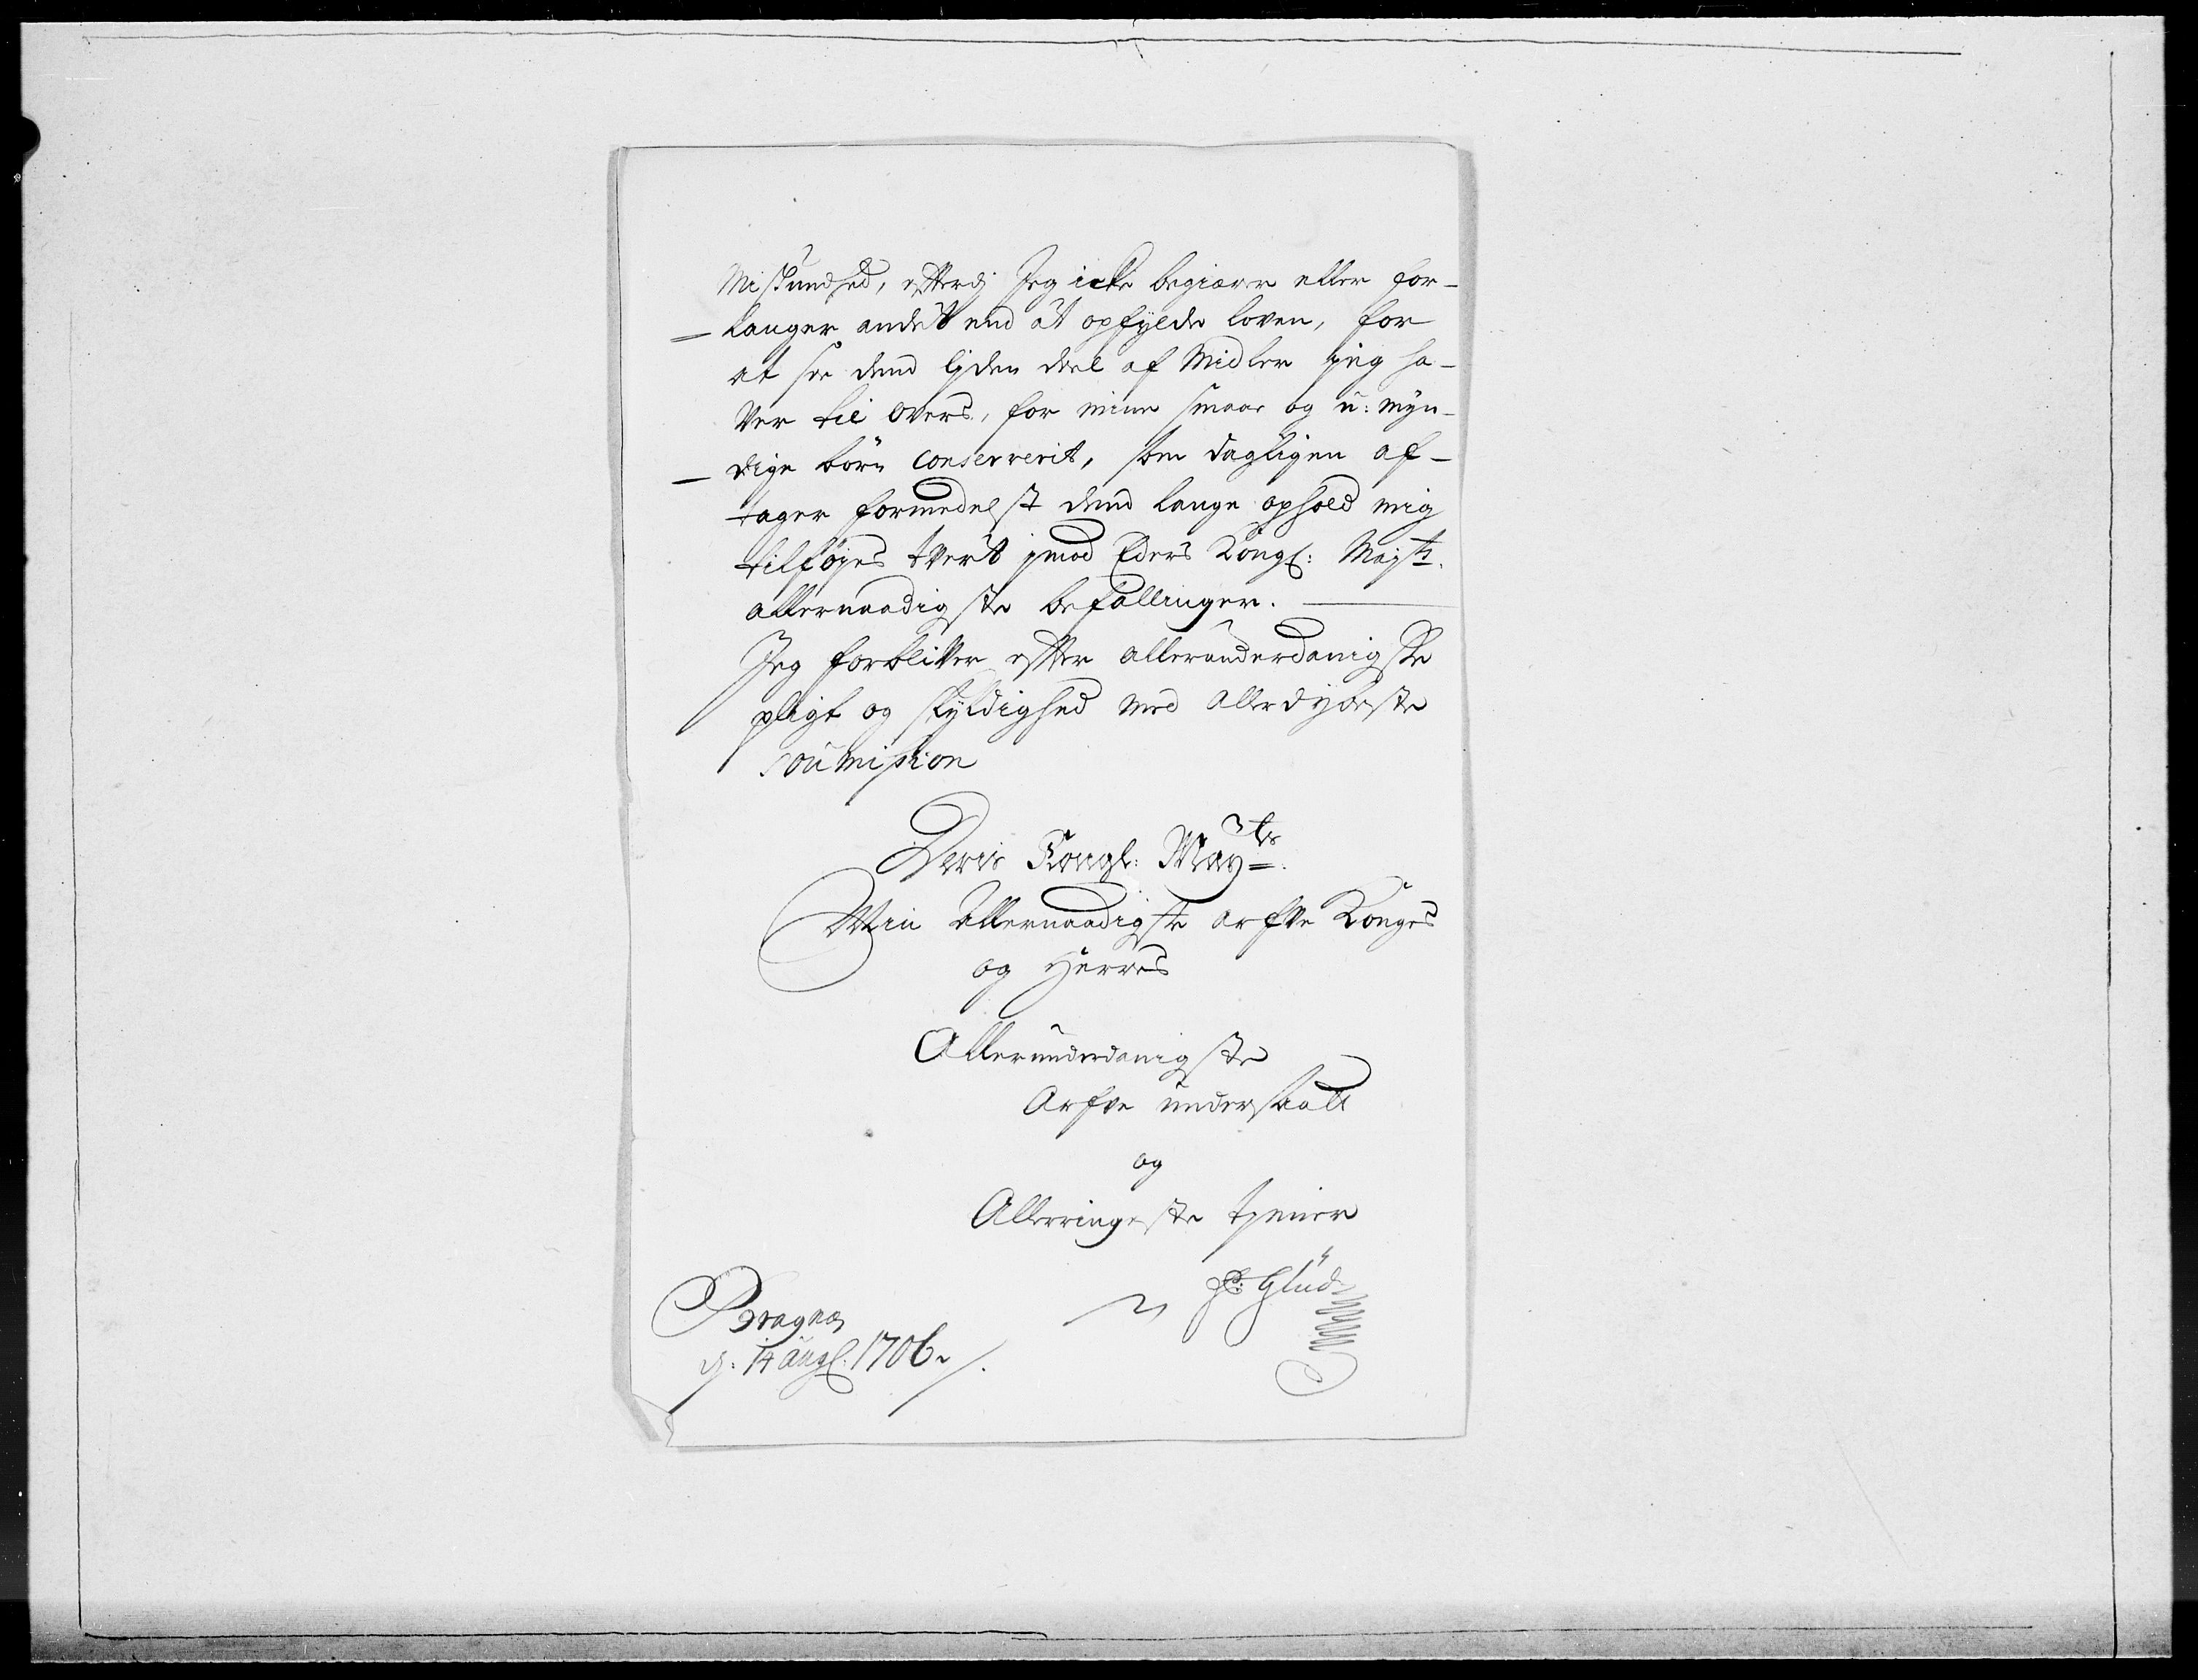 Miskundhed, efterdj Jeg icke begiærer eller for-
langer andet end at opfylde loven, for
at see dend ljden deel af Midler jeg ha-
ver til overs, for mine smaae og u-myn-
dige børn conserverit, som dagligen af-
tager formedelst dend lange ophold mig
tilføjes tvert jmod Eders Kongl: Mayts.
allernaadigste befallinger.
Jeg forbliver efter allerunderdanigste
pligt og skyldighed med allerdybeste
soumission
Deris Kongl: Mayts.
Min Allernaadigste arfve Konges
og Herres
Allerunderdanigste
Arfve undersaatt
og
Allerringeste tjener
Glud
Bragnes
d: 14 augl: 1706.